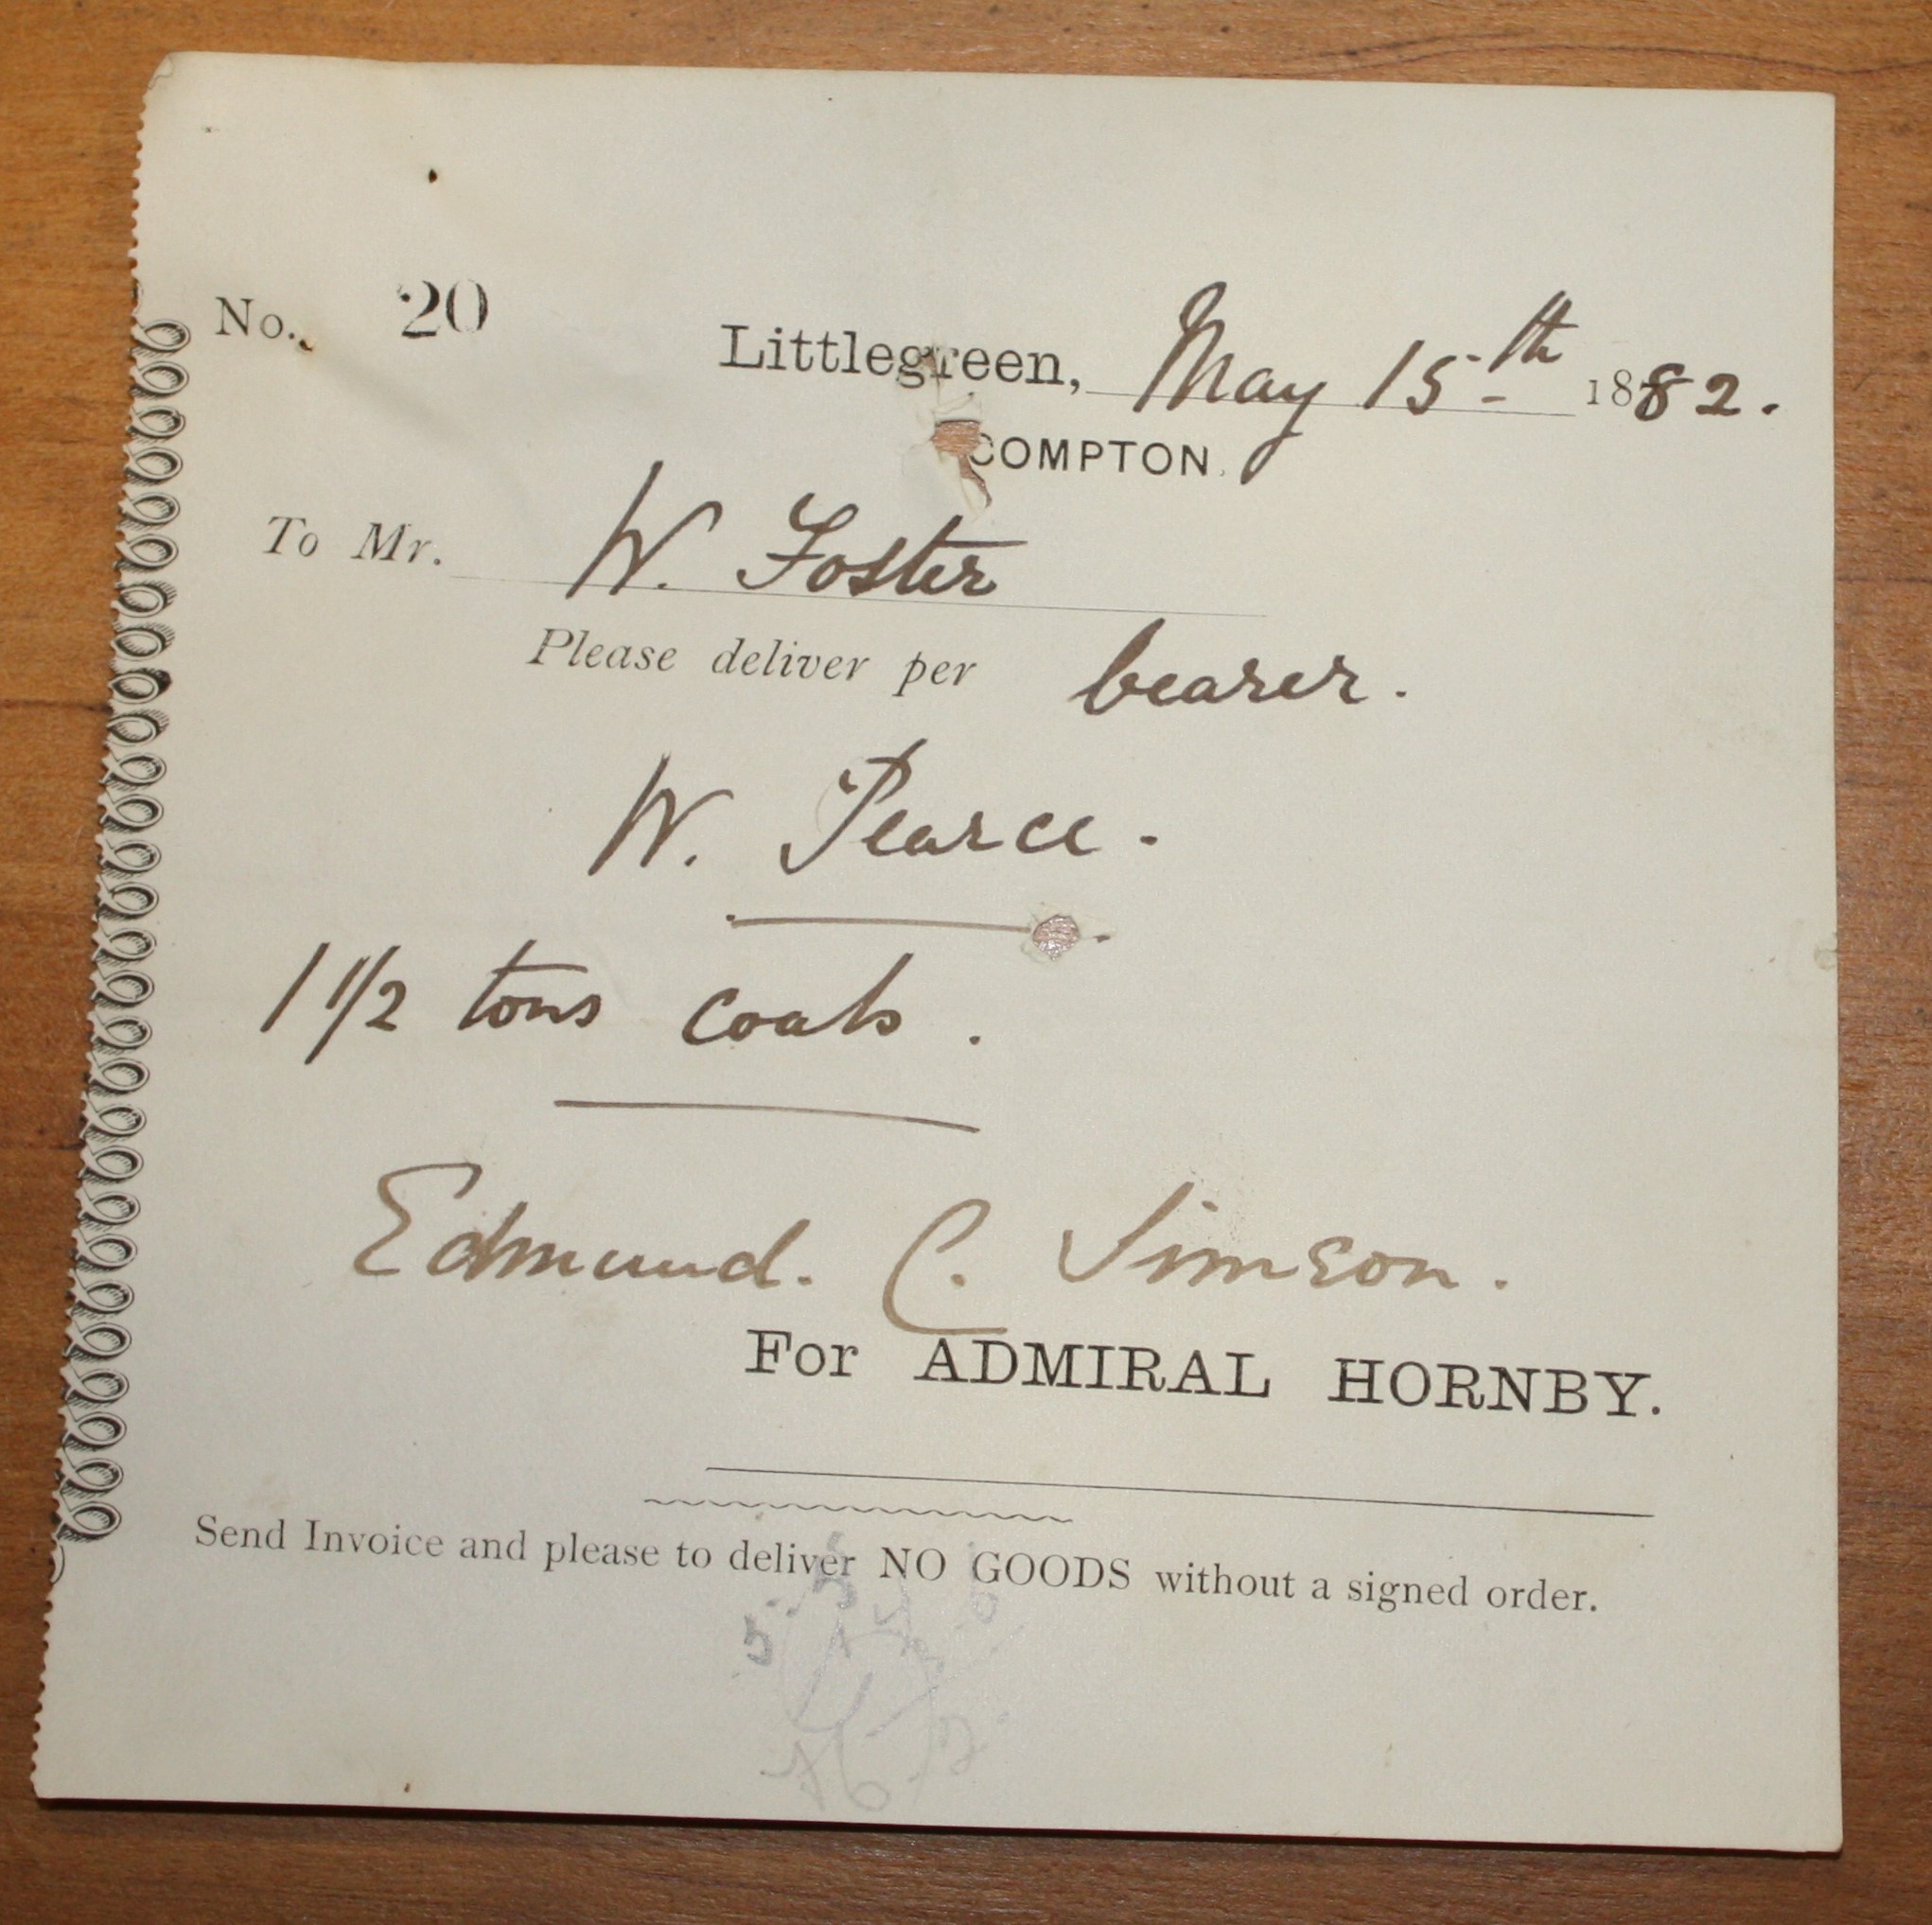 No. 20
Littlegreen, May 15th 1882.
COMPTON.
To Mr. W. Foster
Please deliver per bearer.
W. Pearce.
1 1/2 tons coals.
Edmund. C. Simson.
For ADMIRAL HORNBY.
Send Invoice and please to deliver NO GOODS without a signed order.